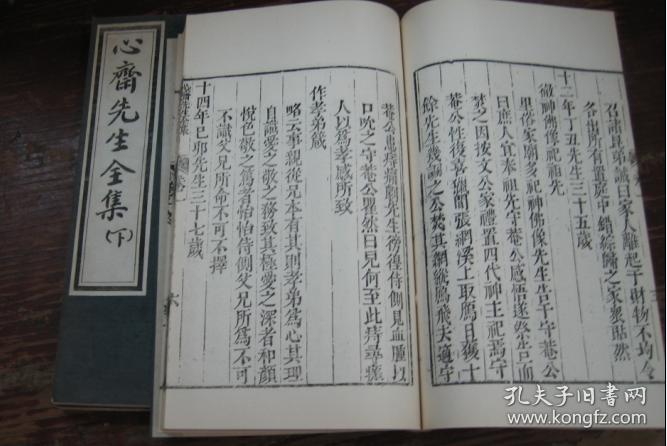 心齋先生全集(下)
召諸昆弟誡曰家人離起于財物不均令
各出所有置庭中錯綜歸之家衆貼然
十二年丁丑先生三十五歲
徹神佛像祀祖先
里俗家廟多祀神佛像先生告于守菴公
曰庶人宜奉祖先守菴公感悟遂祭告而
焚之因按文公家禮置四代神主祀焉守
菴公性復喜獵間張網溪上取鴈日獲十
餘先生幾諫之公焚其網縱鴈飛去適守
菴公患痔痛劇先生徬徨侍側見血腫以
口吮之守菴公瞿然曰兒何至此痔尋瘥
人以爲孝感所致
作孝弟箴
略云事親從兄本有其則孝弟爲心其理
自識愛之敬之務致其極愛之深者和顏
悅色敬之篤者怡怡侍側父兄所爲不可
不識父兄所命不可不擇
十四年己卯先生三十七歲
六
孔夫子旧书网
www.kongfz.com